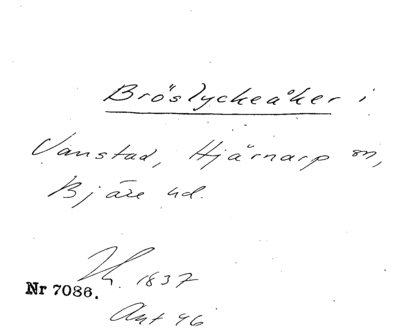 Bröslyckeåker i
Vanstad, Hjärnarp sn,
Bjäre hd.
Lh. 1837
Nr 7086.
Akt 46